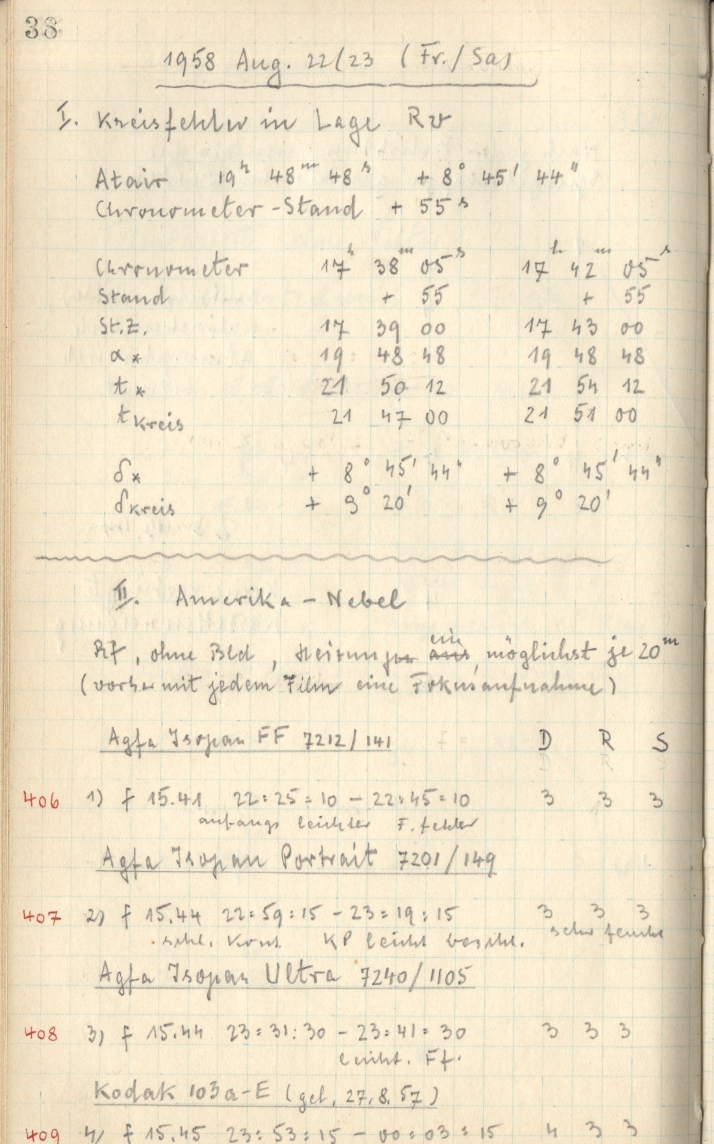 38
1958 Aug. 22/23 (Fr./Sa)
I. Kreisfehler in Lage Rv
Atair 19h 48m 48s + 8° 45' 44"
Chronometer-Stand + 55s
Chronometer 17h 38m 05s 17h 42m 05s
Stand + 55 + 55
St.Z. 17 39 00 17 43 00
α* 19 48 48 19 48 48
t* 21 50 12 21 54 12
tKreis 21 47 00 21 51 00
δ* + 8° 45' 44" + 8° 45' 44"
δKreis + 9° 20' + 9° 20'
II. Amerika-Nebel
Rf, ohne Bld, Heizung ein, möglichst je 20m
(vorher mit jedem Film eine Fokusaufnahme)
Agfa Isopan FF 7212/141 D R S
406 1) f 15.41 22:25:10 - 22:45:10 3 3 3
anfangs leichter F.fehler
Agfa Isopan Portrait 7201/149
407 2) f 15.44 22:59:15 - 23:19:15 3 3 3
schl. Kont. KP leicht beschl. sehr feucht
Agfa Isopan Ultra 7240/1105
408 3) f 15.44 23:31:30 - 23:41:30 3 3 3
leicht. Ff.
Kodak 103a-E (gel. 27.8.57)
409 4) f 15.45 23:53:15 - 00:03:15 4 3 3